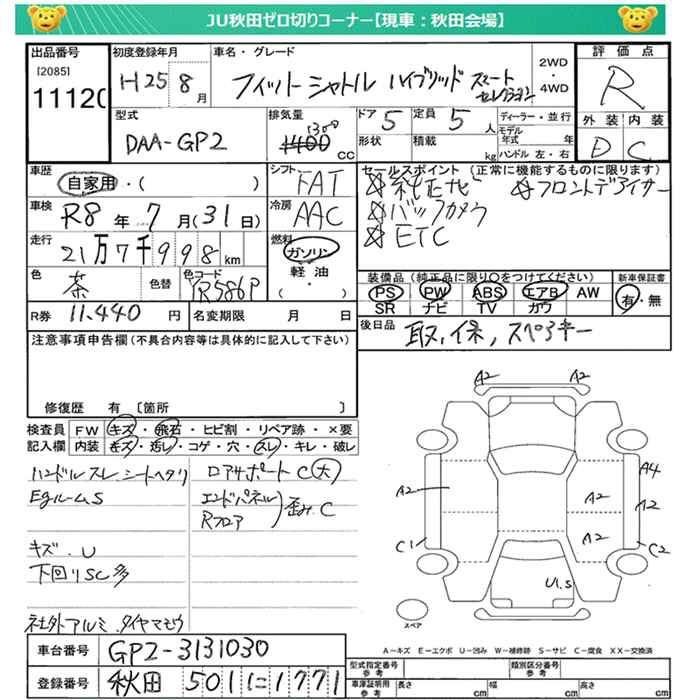 JU秋田ゼロ切りコーナー【現車：秋田会場】
出品番号 初度登録年月 車名・グレード 評価点
[2085] 11120 H25 8月 フィットシャトル ハイブリッド スマートセレクション 2WD・4WD R
型式 排気量 ドア 定員 ディーラー・並行 外装 内装
DAA-GP2 1400 1300 cc 5 5人 モデル年式 年 D C
形状 積載 kg ハンドル 左・右
車歴 自家用・( ) シフト FAT セールスポイント (正常に機能するものに限ります)
純正ナビ フロントデアイサー
車検 R8年7月(31日) 冷房 AAC バックカメラ
走行 21万7千998km 燃料 ガソリン・軽油・( ) ETC
色 茶 色替 色コード R586P 装備品 (純正品に限り○をつけてください) 新車保証書
PS PW ABS エアB AW 有・無
SR ナビ TV カワ
R券 11,440円 名変期限 月 日 後日品 取,保,スペアキー
注意事項申告欄 (不具合内容等は具体的に記入して下さい)
修復歴 有 [箇所 ]
検査員記入欄 FW キズ・飛石・ヒビ割・リペア跡・×要
内装 キズ・汚レ・コゲ・穴・スレ・キレ・破レ
ハンドルスレ シートヘタリ ロアサポートC(大)
EgルームS エンドパネル Rフロア 歪み C
キズ・U
下回りSC多
社外アルミ タイヤマモウ
A2 A2
A2 A2 A4 A2
A2
C1 C2
U1.S
スペア
A－キズ E－エクボ U－凹み W－補修跡 S－サビ C－腐食 XX－交換済
車台番号 GP2-3131030
型式指定番号 参考 類別区分番号 参考
登録番号 秋田 501 に 1771
車庫証明用 参考 長さ cm 幅 cm 高さ cm